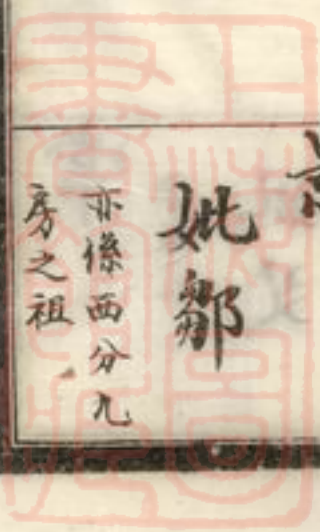 妣鄒
亦係西分九
房之祖